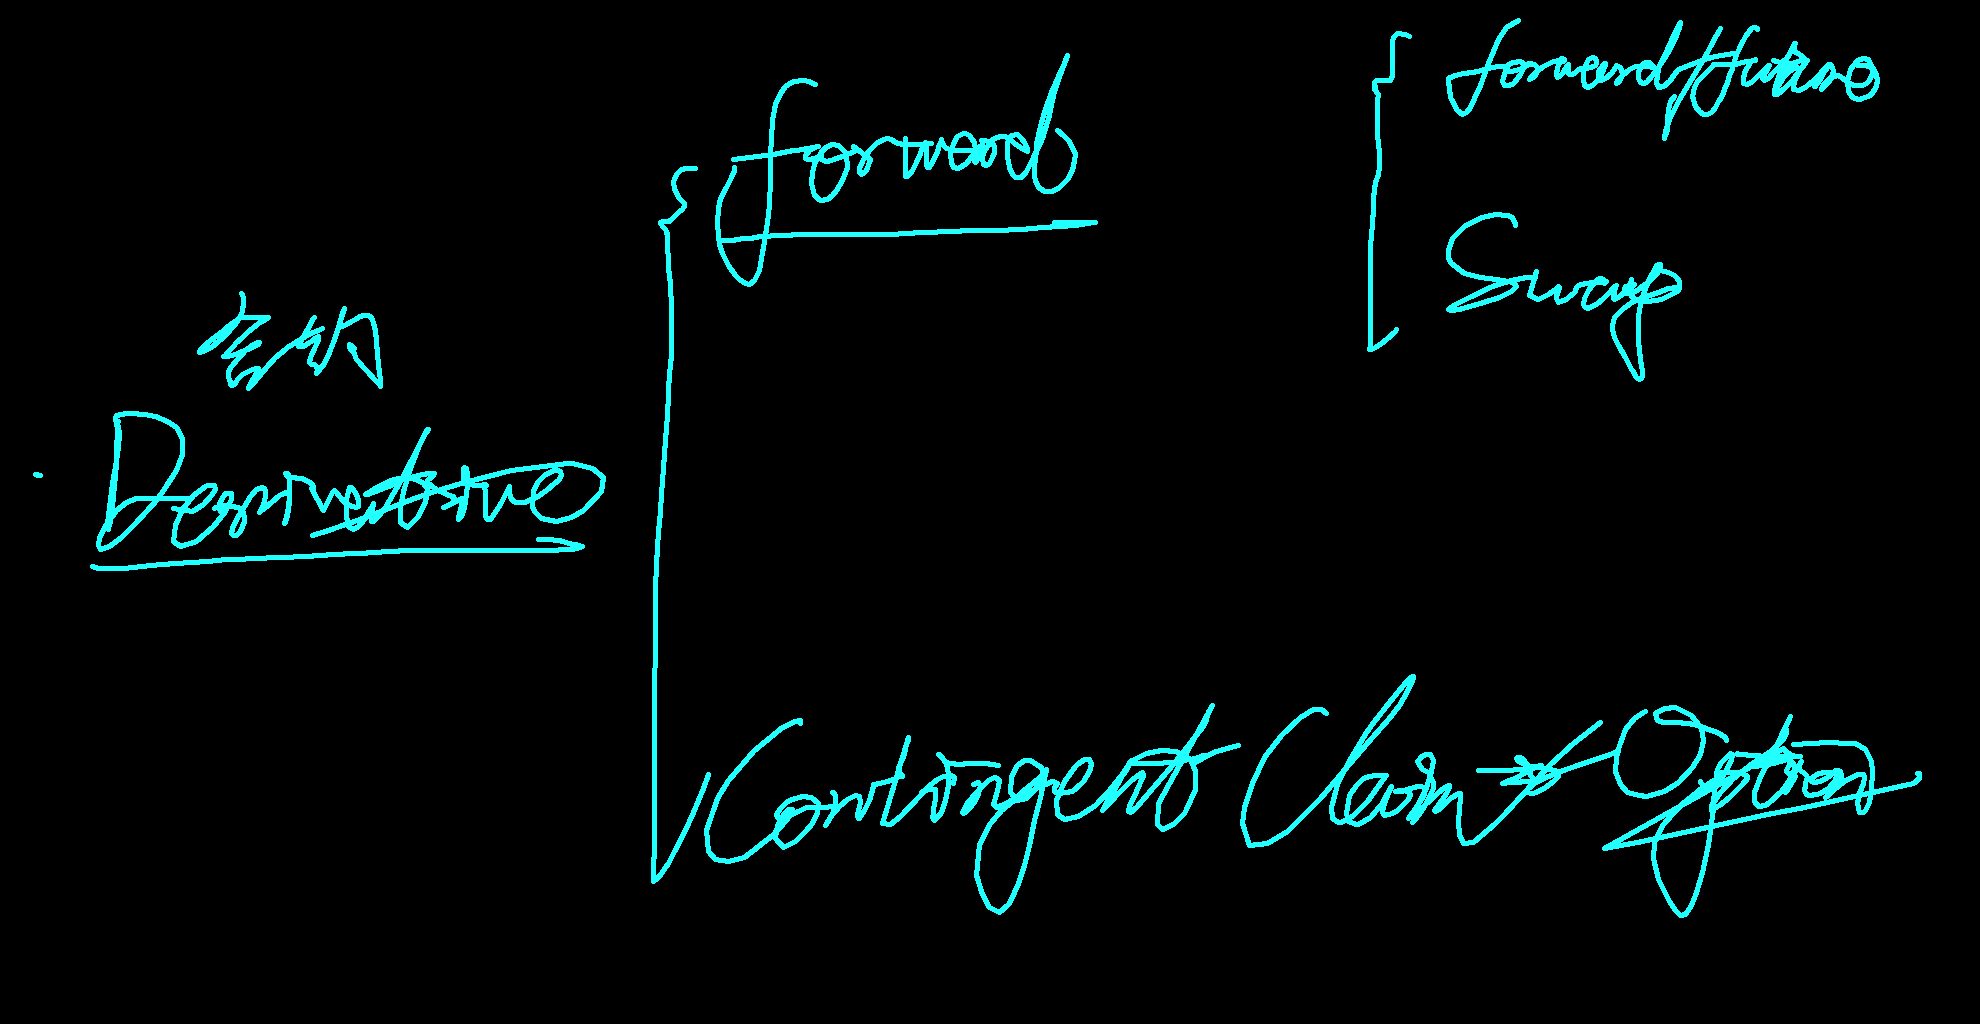 合约
Derivative
forward
forward/future
Swap
Contingent Claim → Option